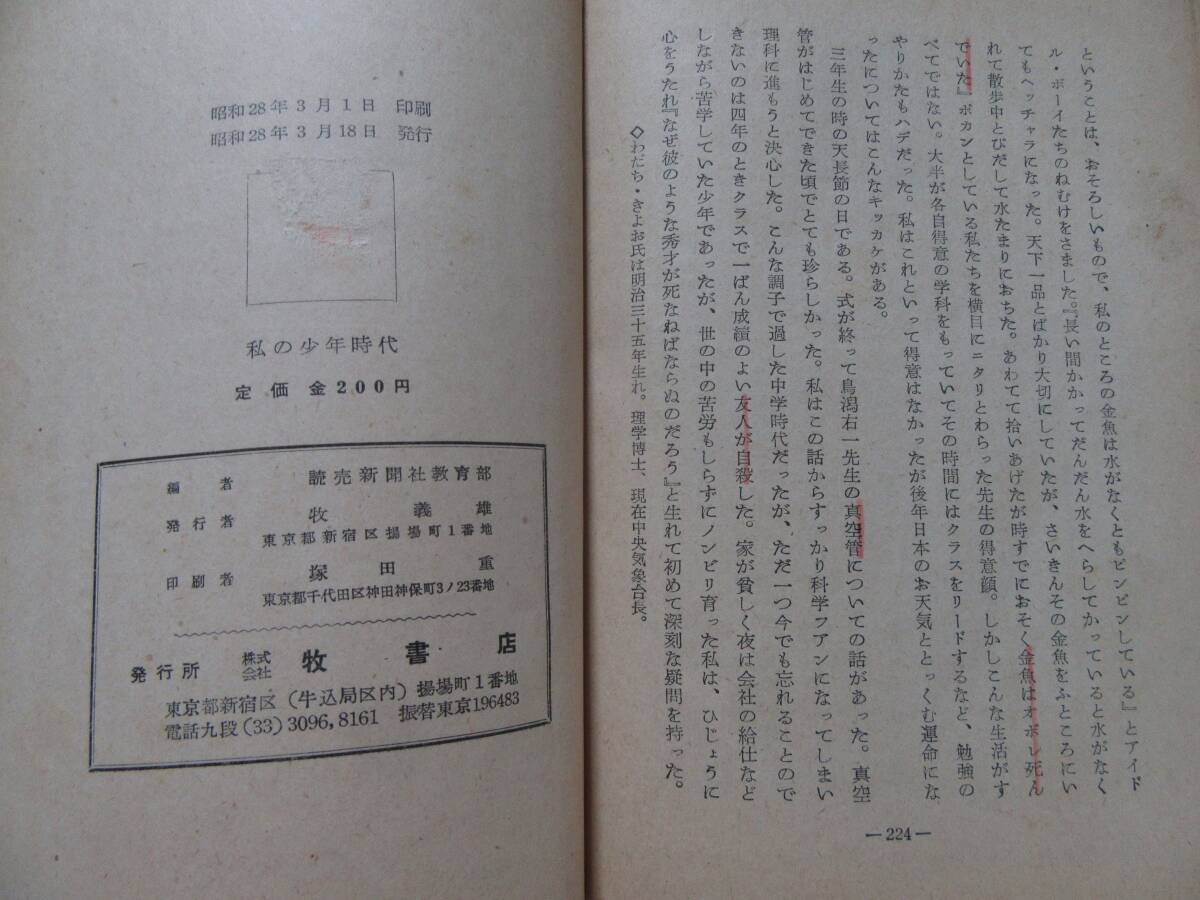 ということは、おそろしいもので、私のところの金魚は水がなくともピンピンしている』とアイド
ル・ボーイたちのねむけをさました。『長い間かかってだんだん水をへらしてかっていると水がなく
てもヘッチャラになった。天下一品とばかり大切にしていたが、さいきんその金魚をふところにい
れて散歩中とびだして水たまりにおちた。あわてて拾いあげたが時すでにおそく金魚はオボレ死ん
でいた』ポカンとしている私たちを横目にニタリとわらった先生の得意顔。しかしこんな生活がす
べてではない。大半が各自得意の学科をもっていてその時間にはクラスをリードするなど、勉強の
やりかたもハデだった。私はこれといって得意はなかったが後年日本のお天気ととっくむ運命にな
ったについてはこんなキッカケがある。
三年生の時の天長節の日である。式が終って鳥潟右一先生の真空管についての話があった。真空
管がはじめてできた頃でとても珍らしかった。私はこの話からすっかり科学フアンになってしまい
理科に進もうと決心した。こんな調子で過した中学時代だったが、ただ一つ今でも忘れることので
きないのは四年のときクラスで一ばん成績のよい友人が自殺した。家が貧しく夜は会社の給仕など
しながら苦学していた少年であったが、世の中の苦労もしらずにノンビリ育った私は、ひじょうに
心をうたれ『なぜ彼のような秀才が死なねばならぬのだろう』と生れて初めて深刻な疑問を持った。
◇わだち・きよお氏は明治三十五年生れ。理学博士、現在中央気象台長。
—224—
昭和28年3月1日 印刷
昭和28年3月18日 発行
私の少年時代
定価 金200円
編者 読売新聞社教育部
発行者 牧義雄
東京都新宿区揚場町1番地
印刷者 塚田重
東京都千代田区神田神保町3ノ23番地
発行所 株式会社 牧書店
東京都新宿区(牛込局区内)揚場町1番地
電話九段(33)3096,8161 振替東京196483